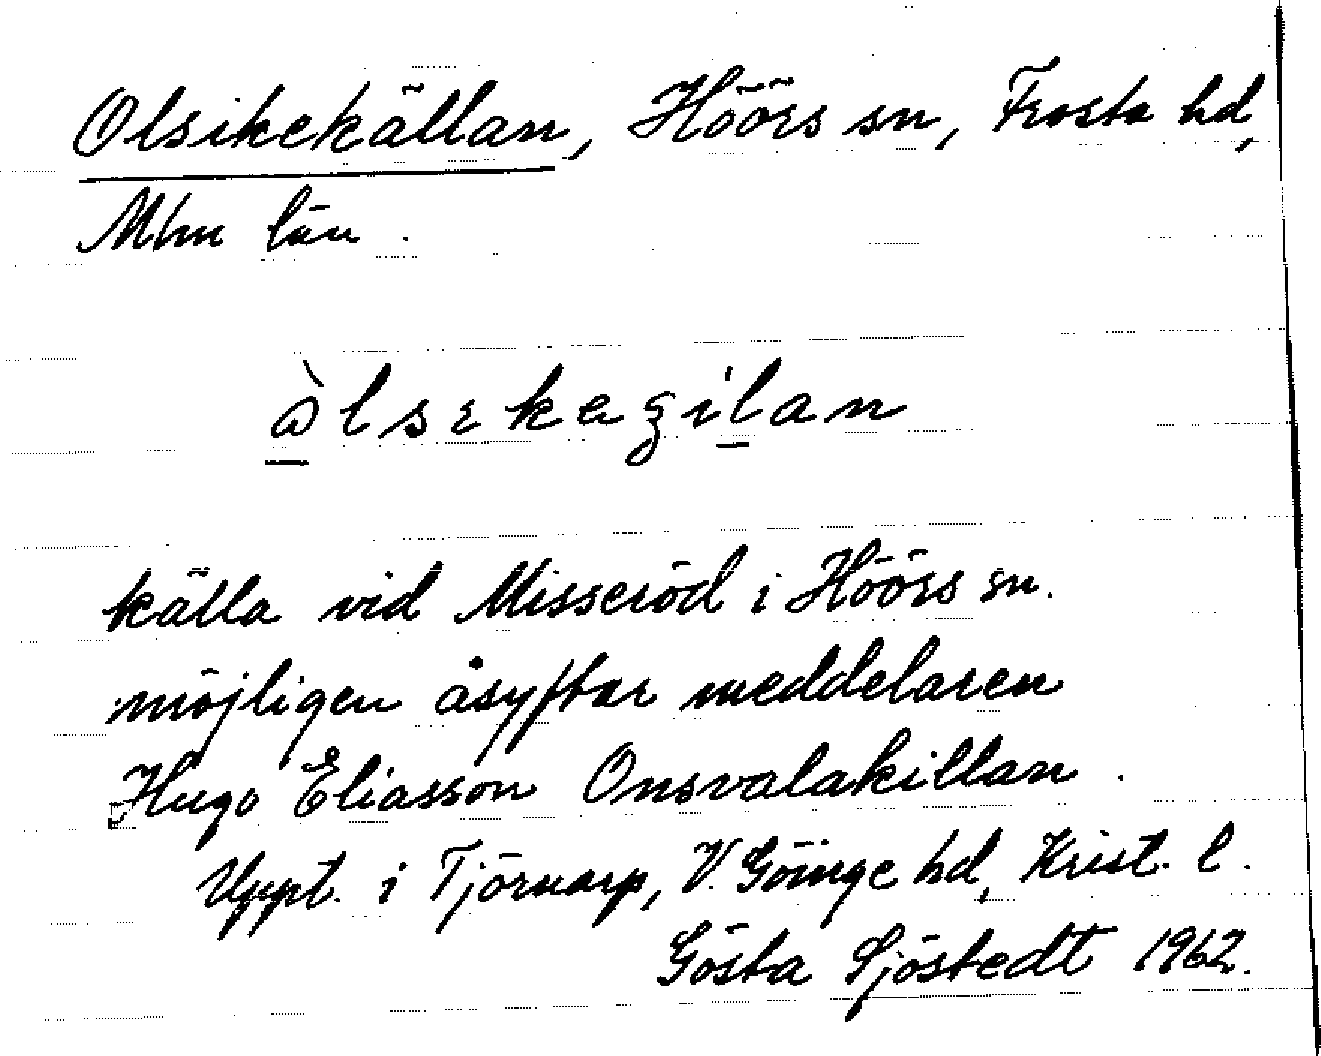 Olsikekällan, Höörs sn, Frosta hd,
Mhm län.
källa vid Misseröd i Höörs sn.
möjligen åsyftar meddelaren
Hugo Eliasson Onsvalakillan.
Uppt. i Tjörnarp, V. Göinge hd, Krist. l.
Gösta Sjöstedt 1962.